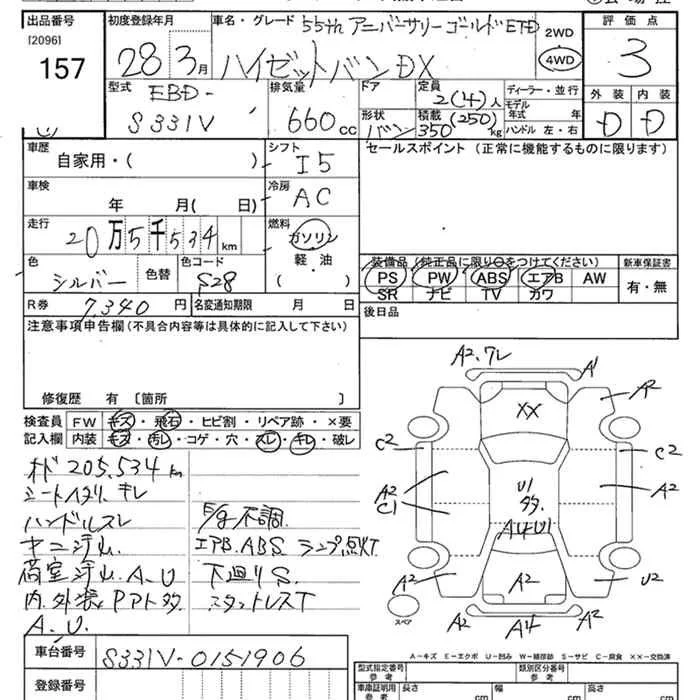 出品番号
[2096]
157
初度登録年月
28 3月
車名・グレード
55th アニバーサリーゴールドETD
ハイゼットバンDX
2WD
4WD
評価点
3
型式
EBD-
S331V
排気量
660cc
ドア
形状
バン
定員
2(4)人
積載
(250)
350 kg
ディーラー・並行
モデル
年式 年
ハンドル 左・右
外装 内装
D D
車歴
自家用・( )
シフト
I5
セールスポイント(正常に機能するものに限ります)
車検
年 月( 日)
冷房
AC
走行
20万5千534km
燃料
ガソリン
軽油
( )
色
シルバー
色替
色コード
S28
装備品(純正品に限り○をつけてください)
PS PW ABS エアB AW
SR ナビ TV カワ
新車保証書
有・無
R券 7,340円
名変通知期限 月 日
後日品
注意事項申告欄(不具合内容等は具体的に記入して下さい)
修復歴 有 〔箇所 〕
検査員
記入欄
FW キズ・飛石・ヒビ割・リペア跡・×要
内装 キズ・汚レ・コゲ・穴・スレ・キレ・破レ
205,534km
シートヘタリ、キレ
ハンドルスレ
荷室汚れ.A.U
A.U.
P/g不調
エアB.ABS ランプ点灯
下廻りS
A2.ワレ A1
A2
XX
C2 C2
A2
C1
U1
多
A4U1
A2
A2 A2 U2
スペア
A2 A4 A2
A-キズ E-エクボ U-凹み W-補修跡 S-サビ C-腐食 XX-交換済
車台番号 S331V-0151906
登録番号
型式指定番号
(参考)
類別区分番号
(参考)
車庫証明用
(参考)
長さ cm
幅 cm
高さ cm